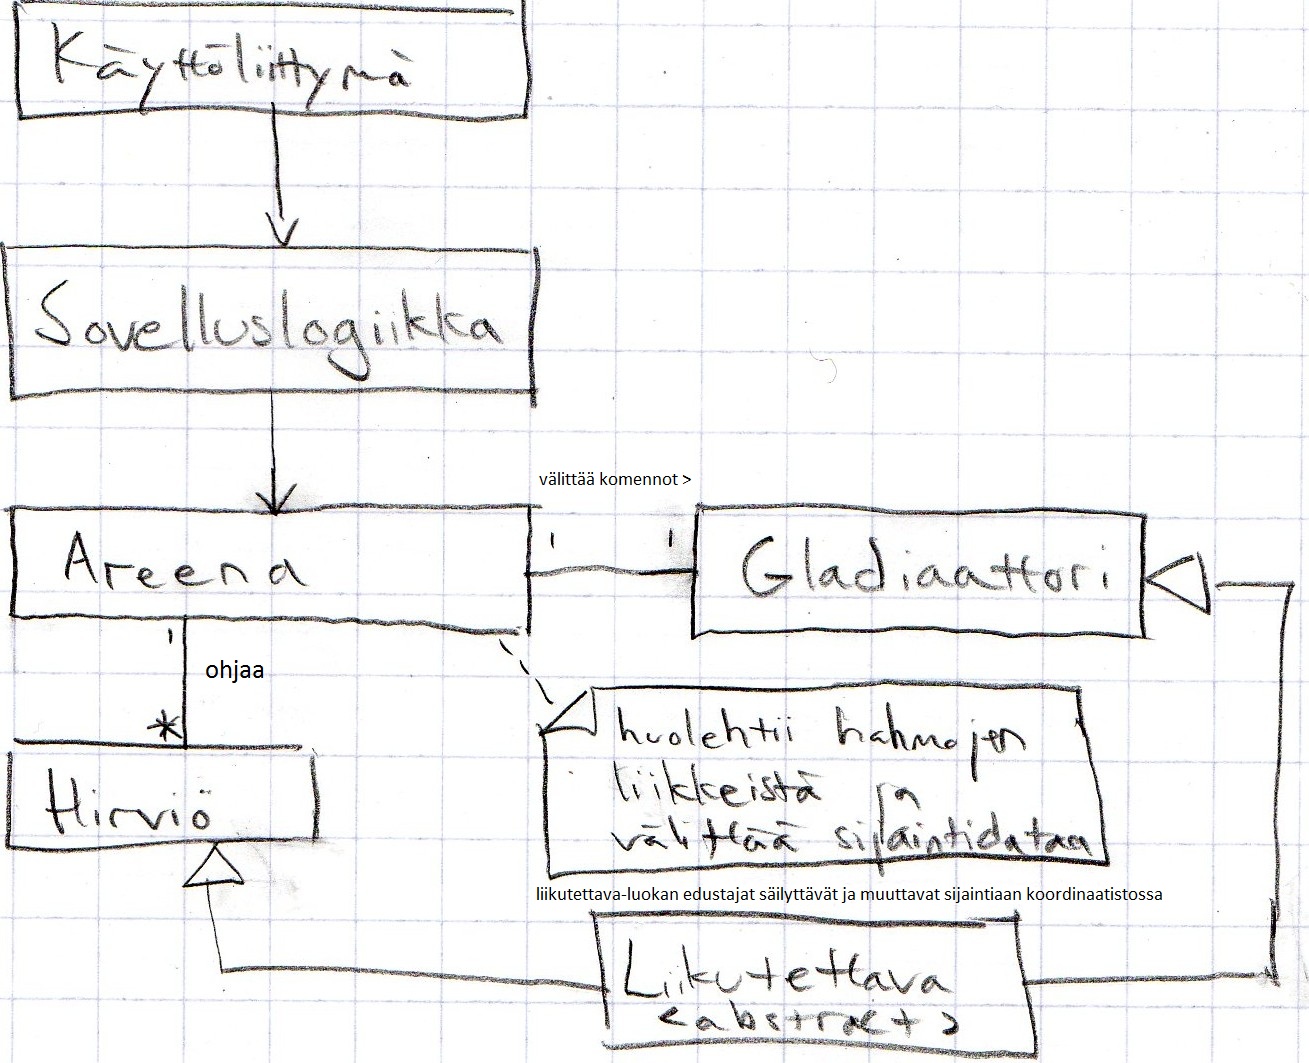 Käyttöliittymä
Sovelluslogiikka
välittää komennot >
Areena
1
1
Gladiaattori
1
ohjaa
*
huolehtii hahmojen
liikkeistä ja
välittää sijaintidataa
Hirviö
liikutettava-luokan edustajat säilyttävät ja muuttavat sijaintiaan koordinaatistossa
Liikutettava
<abstract>